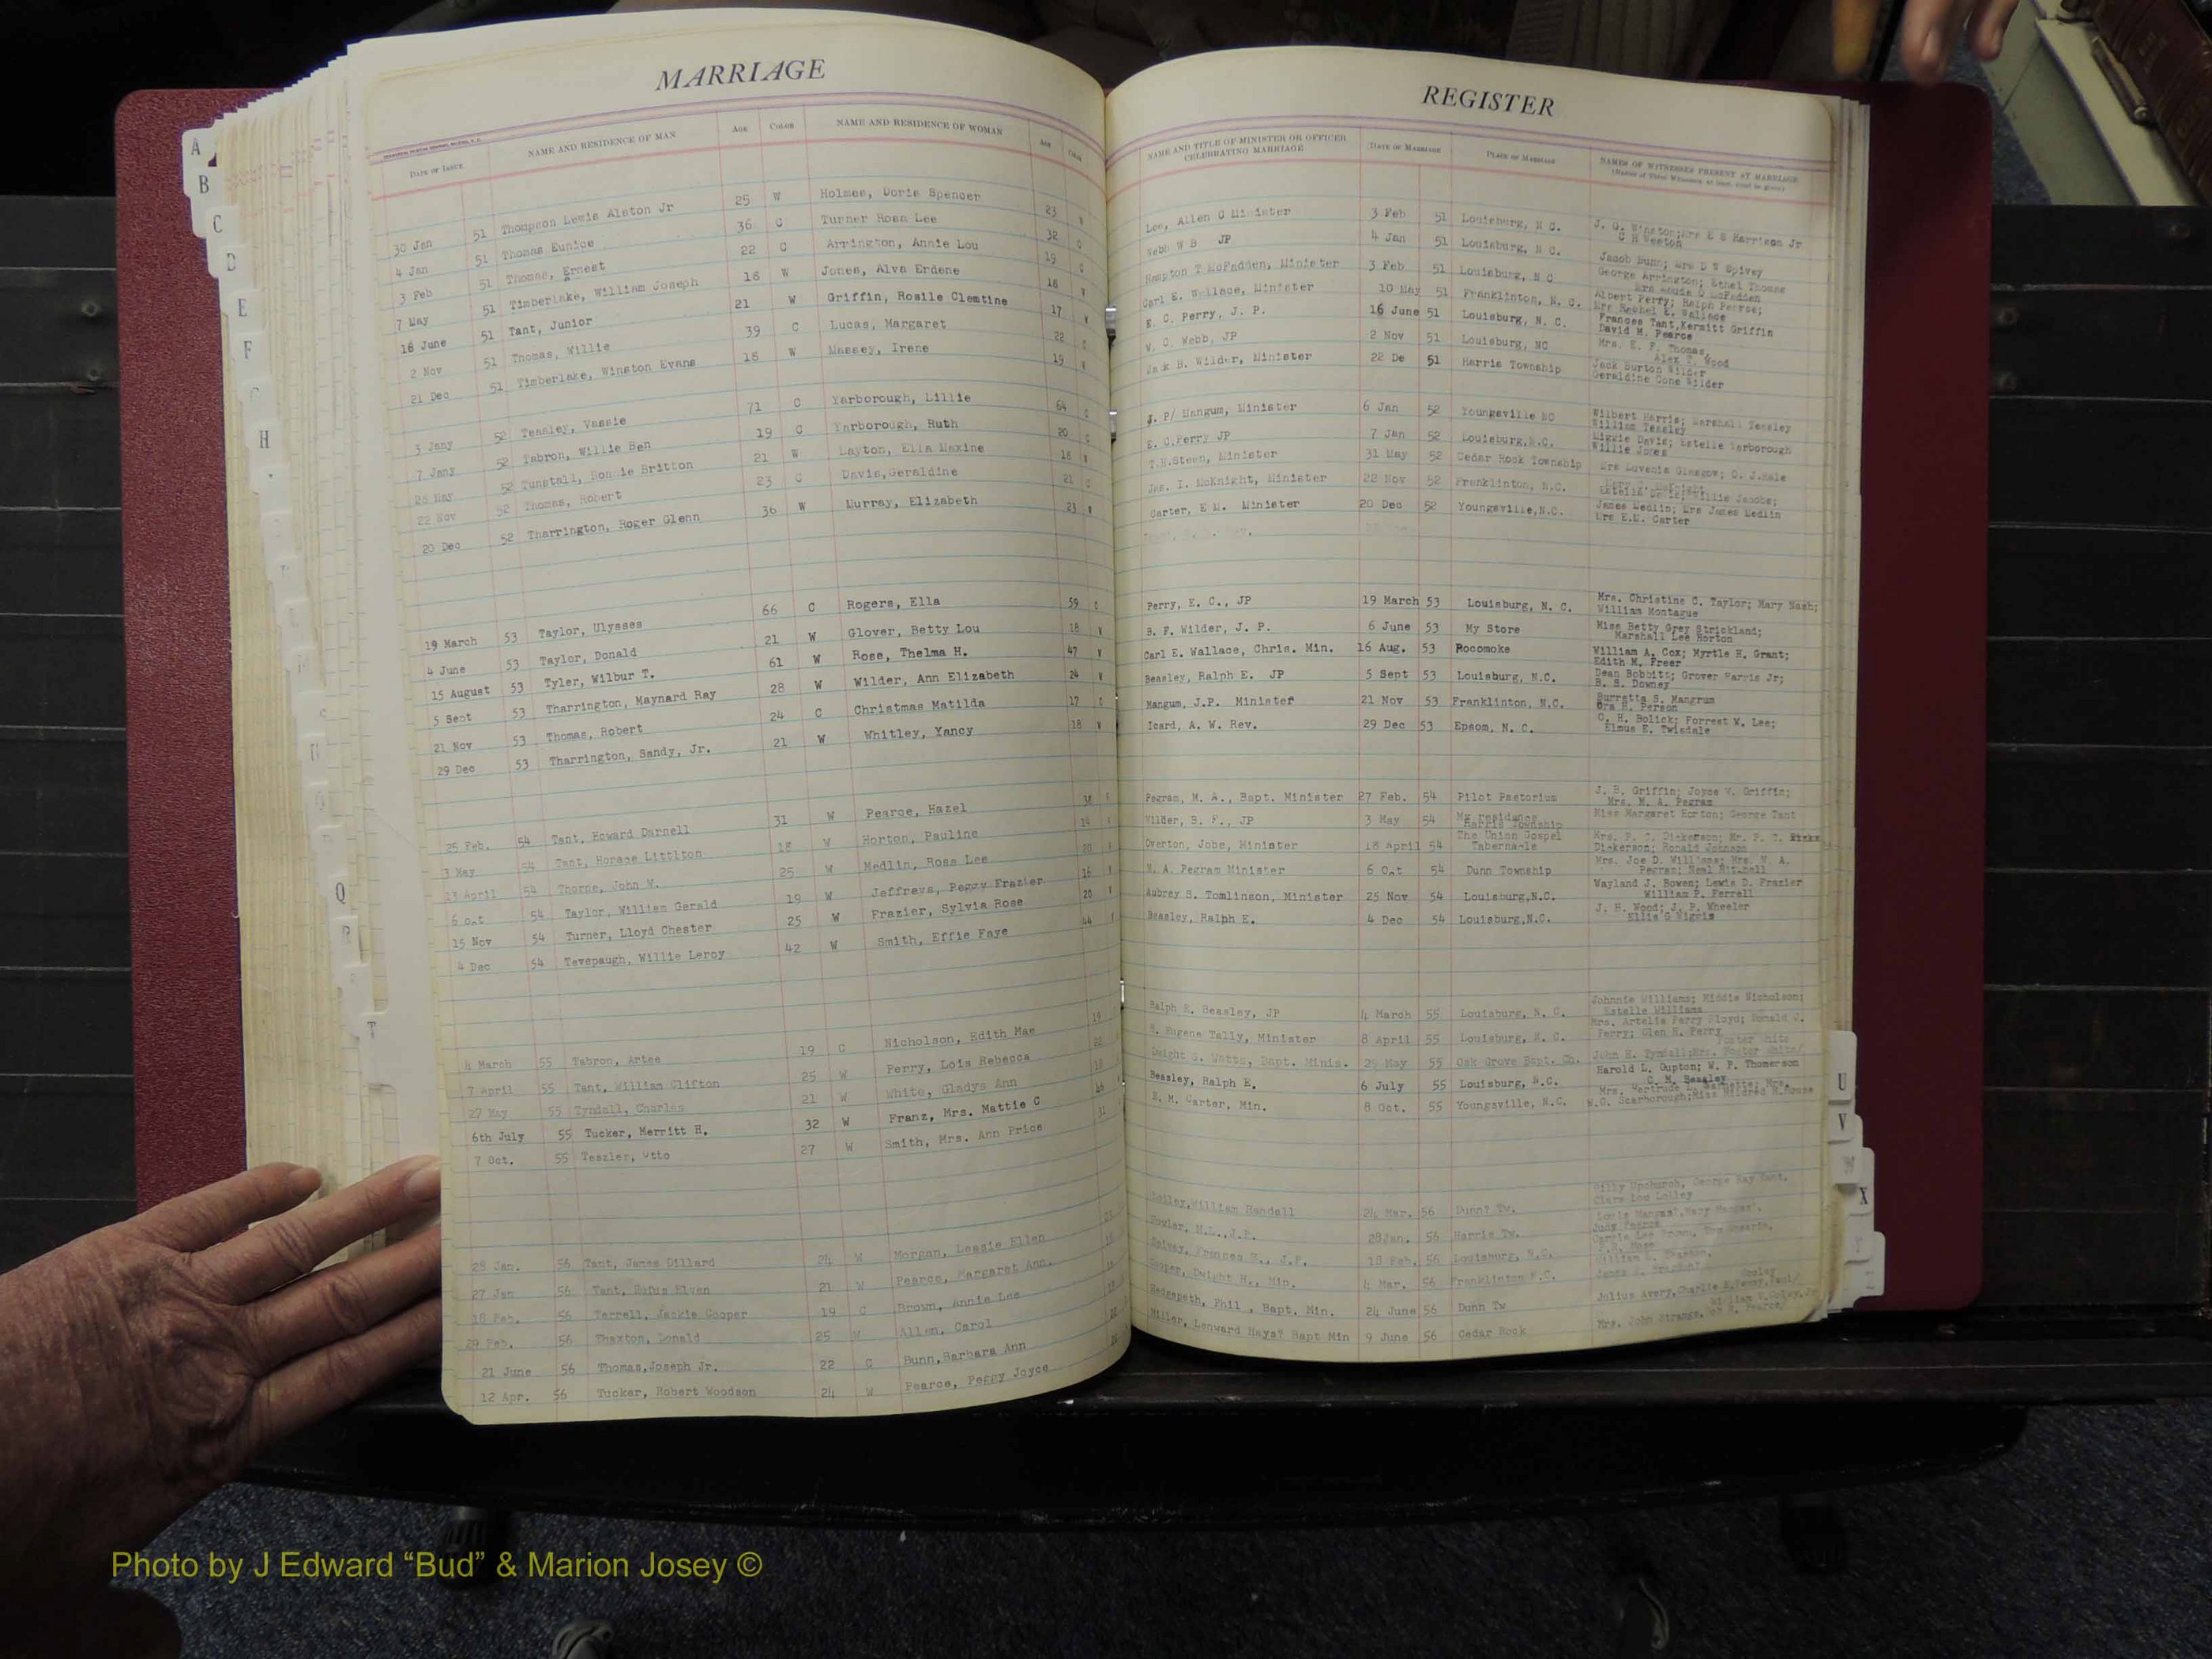 MARRIAGE
DATE OF ISSUE NAME AND RESIDENCE OF MAN AGE COLOR NAME AND RESIDENCE OF WOMAN AGE COLOR
30 Jan 51 Thompson Lewis Alston Jr 25 W Holmes, Doris Spencer 23 W
4 Jan 51 Thomas Eunice 36 C Turner Rosa Lee 32 C
3 Feb 51 Thomas, Ernest 22 C Arrington, Annie Lou 19 C
7 May 51 Timberlake, William Joseph 18 W Jones, Alva Erdene 18 W
16 June 51 Tant, Junior 21 W Griffin, Rosile Clemtine 17 W
2 Nov 51 Thomas, Willie 39 C Lucas, Margaret 22 C
21 Dec 51 Timberlake, Winston Evans 18 W Massey, Irene 19 W
3 Jany 52 Teasley, Vassie 71 C Yarborough, Lillie 64 C
7 Jany 52 Tabron, Willie Ben 19 C Yarborough, Ruth 20 C
28 May 52 Tunstall, Bonnie Britton 21 W Layton, Ella Maxine 18 W
22 Nov 52 Thomas, Robert 23 C Davis,Geraldine 21 C
20 Dec 52 Tharrington, Roger Glenn 36 W Murray, Elizabeth 23 W
19 March 53 Taylor, Ulysses 66 C Rogers, Ella 59 C
4 June 53 Taylor, Donald 21 W Glover, Betty Lou 18 W
15 August 53 Tyler, Wilbur T. 61 W Rose, Thelma H. 47 W
5 Sept 53 Tharrington, Maynard Ray 28 W Wilder, Ann Elizabeth 24 W
21 Nov 53 Thomas, Robert 24 C Christmas Matilda 17 C
29 Dec 53 Tharrington, Sandy, Jr. 21 W Whitley, Yancy 18 W
25 Feb. 54 Tant, Edward Darnell 31 W Pearce, Hazel
3 May 54 Tant, Horace Littlton 18 W Horton, Pauline
13 April 54 Thorne, John W. 25 W Medlin, Rosa Lee 20
6 Oct 54 Taylor, William Gerald 19 W Jeffreys, Peggy Frazier 16
15 Nov 54 Turner, Lloyd Chester 25 W Frazier, Sylvia Rose 20
4 Dec 54 Tevepaugh, Willie Leroy 42 W Smith, Effie Faye 44
4 March 55 Tabron, Artee 19 C Nicholson, Edith Mae 19
7 April 55 Tant, William Clifton 25 W Perry, Lois Rebecca
27 May 55 Tyndall, Charles 21 W White, Gladys Ann
6th July 55 Tucker, Merritt H. 32 W Franz, Mrs. Mattie C
7 Oct. 55 Teszler, Otto 27 W Smith, Mrs. Ann Price 31
28 Jan. 56 Tant, James Dillard 24 W Morgan, Lessie Ellen
27 Jan 56 Tant, Rufus Elven 21 W Pearce, Margaret Ann.
18 Feb. 56 Terrell, Jackie Cooper 19 C Brown, Annie Lee
29 Feb. 56 Thaxton, Donald 25 W Allen, Carol
21 June 56 Thomas,Joseph Jr. 22 C Bunn,Barbara Ann
12 Apr. 56 Tucker, Robert Woodson 24 W Pearce, Peggy Joyce
REGISTER
NAME AND TITLE OF MINISTER OR OFFICER CELEBRATING MARRIAGE DATE OF MARRIAGE PLACE OF MARRIAGE NAMES OF WITNESSES PRESENT AT MARRIAGE
(Names of Three Witnesses, at least, must be given)
Lee, Allen C Minister 3 Feb 51 Louisburg, N C. J. O. Winston;Mrs E S Harrison Jr
C H Weston
Webb W B JP 4 Jan 51 Louisburg, N C. Jacob Bunn; Mrs D S Spivey
Hampton T McFadden, Minister 3 Feb 51 Louisburg, N C George Arrington; Ethel Thomas
Mrs Maude O McFadden
Carl E. Wallace, Minister 10 May 51 Franklinton, N. C. Albert Perry; Ralph Pearce;
Mrs Rachel E. Wallace
E. C. Perry, J. P. 16 June 51 Louisburg, N. C. Frances Tant,Kermitt Griffin
David M. Pearce
W. C. Webb, JP 2 Nov 51 Louisburg, NC Mrs. E. F. Thomas,
Alex T. Wood
Jack B. Wilder, Minister 22 De 51 Harris Township Jack Burton Wilder
Geraldine Cone Wilder
J. P/ Mangum, Minister 6 Jan 52 Youngsville NC Wilbert Harris; Marshall Teasley
William Teasley
E. C.Perry JP 7 Jan 52 Louisburg,N.C. Lizzie Davis; Estelle Yarborough
Willie Jones
T.H.Steen, Minister 31 May 52 Cedar Rock Township Mrs Luvenia Glasgow; O. J.Hale
Jas. I. McKnight, Minister 22 Nov 52 Franklinton, N.C. Estelle Davis; Willie Jacobs;
Carter, E M. Minister 20 Dec 52 Youngsville,N.C. James Medlin; Mrs James Medlin
Mrs E.M. Carter
Perry, E. C., JP 19 March 53 Louisburg, N. C. Mrs. Christine C. Taylor; Mary Nash;
William Montague
B. F. Wilder, J. P. 6 June 53 My Store Miss Betty Grey Strickland;
Marshall Lee Horton
Carl E. Wallace, Chris. Min. 16 Aug. 53 Rocomoke William A. Cox; Myrtle H. Grant;
Edith M. Freer
Beasley, Ralph E. JP 5 Sept 53 Louisburg, N.C. Dean Bobbitt; Grover Harris Jr;
B. S. Downey
Mangum, J.P. Minister 21 Nov 53 Franklinton, N.C. Burretta S. Mangrum
Ora H. Person
Icard, A. W. Rev. 29 Dec 53 Epsom, N. C. O. H. Bolick; Forrest W. Lee;
Elmus E. Twisdale
Pegram, M. A., Bapt. Minister 27 Feb. 54 Pilot Pastorium J. B. Griffin; Joyce W. Griffin;
Mrs. M. A. Pegram
Wilder, B. F., JP 3 May 54 My residence
Harris Township Miss Margaret Horton; George Tant
Overton, Jobe, Minister 18 April 54 The Union Gospel
Tabernacle Mrs. P. C. Dickerson; Mr. P. C.
Dickerson; Ronald Johnson
M. A. Pegram Minister 6 Oct 54 Dunn Township Mrs. Joe D. Williams; Mrs. M. A.
Pegram; Neal Mitchell
Aubrey S. Tomlinson, Minister 25 Nov 54 Louisburg,N.C. Wayland J. Bowen; Lewis D. Frazier
William P. Ferrell
Beasley, Ralph E. 4 Dec 54 Louisburg,N.C. J. H. Wood; J. P. Wheeler
Ellis G
Ralph E. Beasley, JP 4 March 55 Louisburg, N. C. Johnnie Williams; Kiddie Nicholson;
Estelle Williams
H. Eugene Tally, Minister 8 April 55 Louisburg, N. C. Mrs. Artelia Perry Floyd; Donald J.
Perry; Glen H. Perry
Dwight S. Watts, Bapt. Minis. 29 May 55 Oak Grove Bapt. Ch. John H. Tyndall;Mrs. Foster White/
Foster White
Beasley, Ralph E. 6 July 55 Louisburg, N.C. Harold L. Gupton; W. P. Thomerson
C. M. Beasley
E. M. Carter, Min. 8 Oct. 55 Youngsville, N.C. Mrs. Gertrude
Scarborough;Miss Mildred
Lolley,William Randall 24 Mar. 56 Dunn? Tw. Billy Upchurch, George Ray Tant,
Clara Lou Lolley
Fowler, M.L.,J.P. 28Jan. 56 Harris Tw. Judy Pearce
Spivey, Frances B., J.P. 18 Feb. 56 Louisburg, N.C. Carrie Lee Brown,
Cooper, Dwight H., Min. 4 Mar. 56 Franklinton N.C.
Hedgepeth, Phil , Bapt. Min. 24 June 56 Dunn Tw Julius Avery,Charlie
Miller, Lenward Hays? Bapt Min 9 June 56 Cedar Rock Mrs. John Strange,
A
B
C
D
E
F
H
Q
R
T
U
V
W
X
Y
Photo by J Edward “Bud” & Marion Josey ©